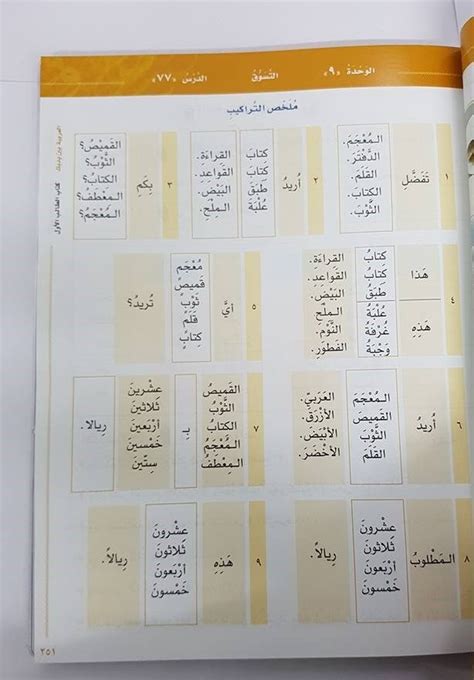 الوحدة «٩» التسوق الدرس «٧٧»
ملخص التراكيب
١ تفضل
المُعْجَمَ.
الدَّفْتَرَ.
القَلَمَ.
الكِتابَ.
الثَّوْبَ.
٢ أُريدُ
كتابَ القراءَةِ.
كتابَ القواعِدِ.
طَبَقَ البَيْضِ.
عُلْبَةَ المِلْحِ.
٣ بِكَمِ
القَميصُ؟
الثَّوْبُ؟
الكتابُ؟
المِعْطَفُ؟
المُعْجَمُ؟
٤ هَذا
كتابُ القراءَةِ.
كتابُ القَواعِدِ.
طَبَقُ البَيْضِ.
هَذِهِ
عُلْبَةُ المِلْحِ.
غُرْفَةُ النَّوْمِ.
وَجْبَةُ الفَطورِ.
٥ أيَّ
مُعْجَمٍ
قَميصٍ
ثَوْبٍ
قَلَمٍ
كِتابٍ
تُريدُ؟
٦ أُريدُ
المُعْجَمَ العَرَبيَّ.
القَميصَ الأَزْرَقَ.
الثَّوْبَ الأَبْيَضَ.
القَلَمَ الأَخْضَرَ.
٧
القَميصُ
الثَّوْبُ
الكتابُ
المُعْجَمُ
المِعْطَفُ
بِـ
عِشْرينَ
ثَلاثينَ
أرْبَعينَ
خَمْسينَ
سِتّينَ
رِيالاً.
٨ المَطْلوبُ
عِشْرونَ
ثَلاثونَ
أرْبَعونَ
خَمْسونَ
رِيالاً.
٩ هَذِهِ
عِشْرونَ
ثَلاثونَ
أرْبَعونَ
خَمْسونَ
رِيالاً.
العربية بين يديك كتاب الطالب الأول
٢٥١